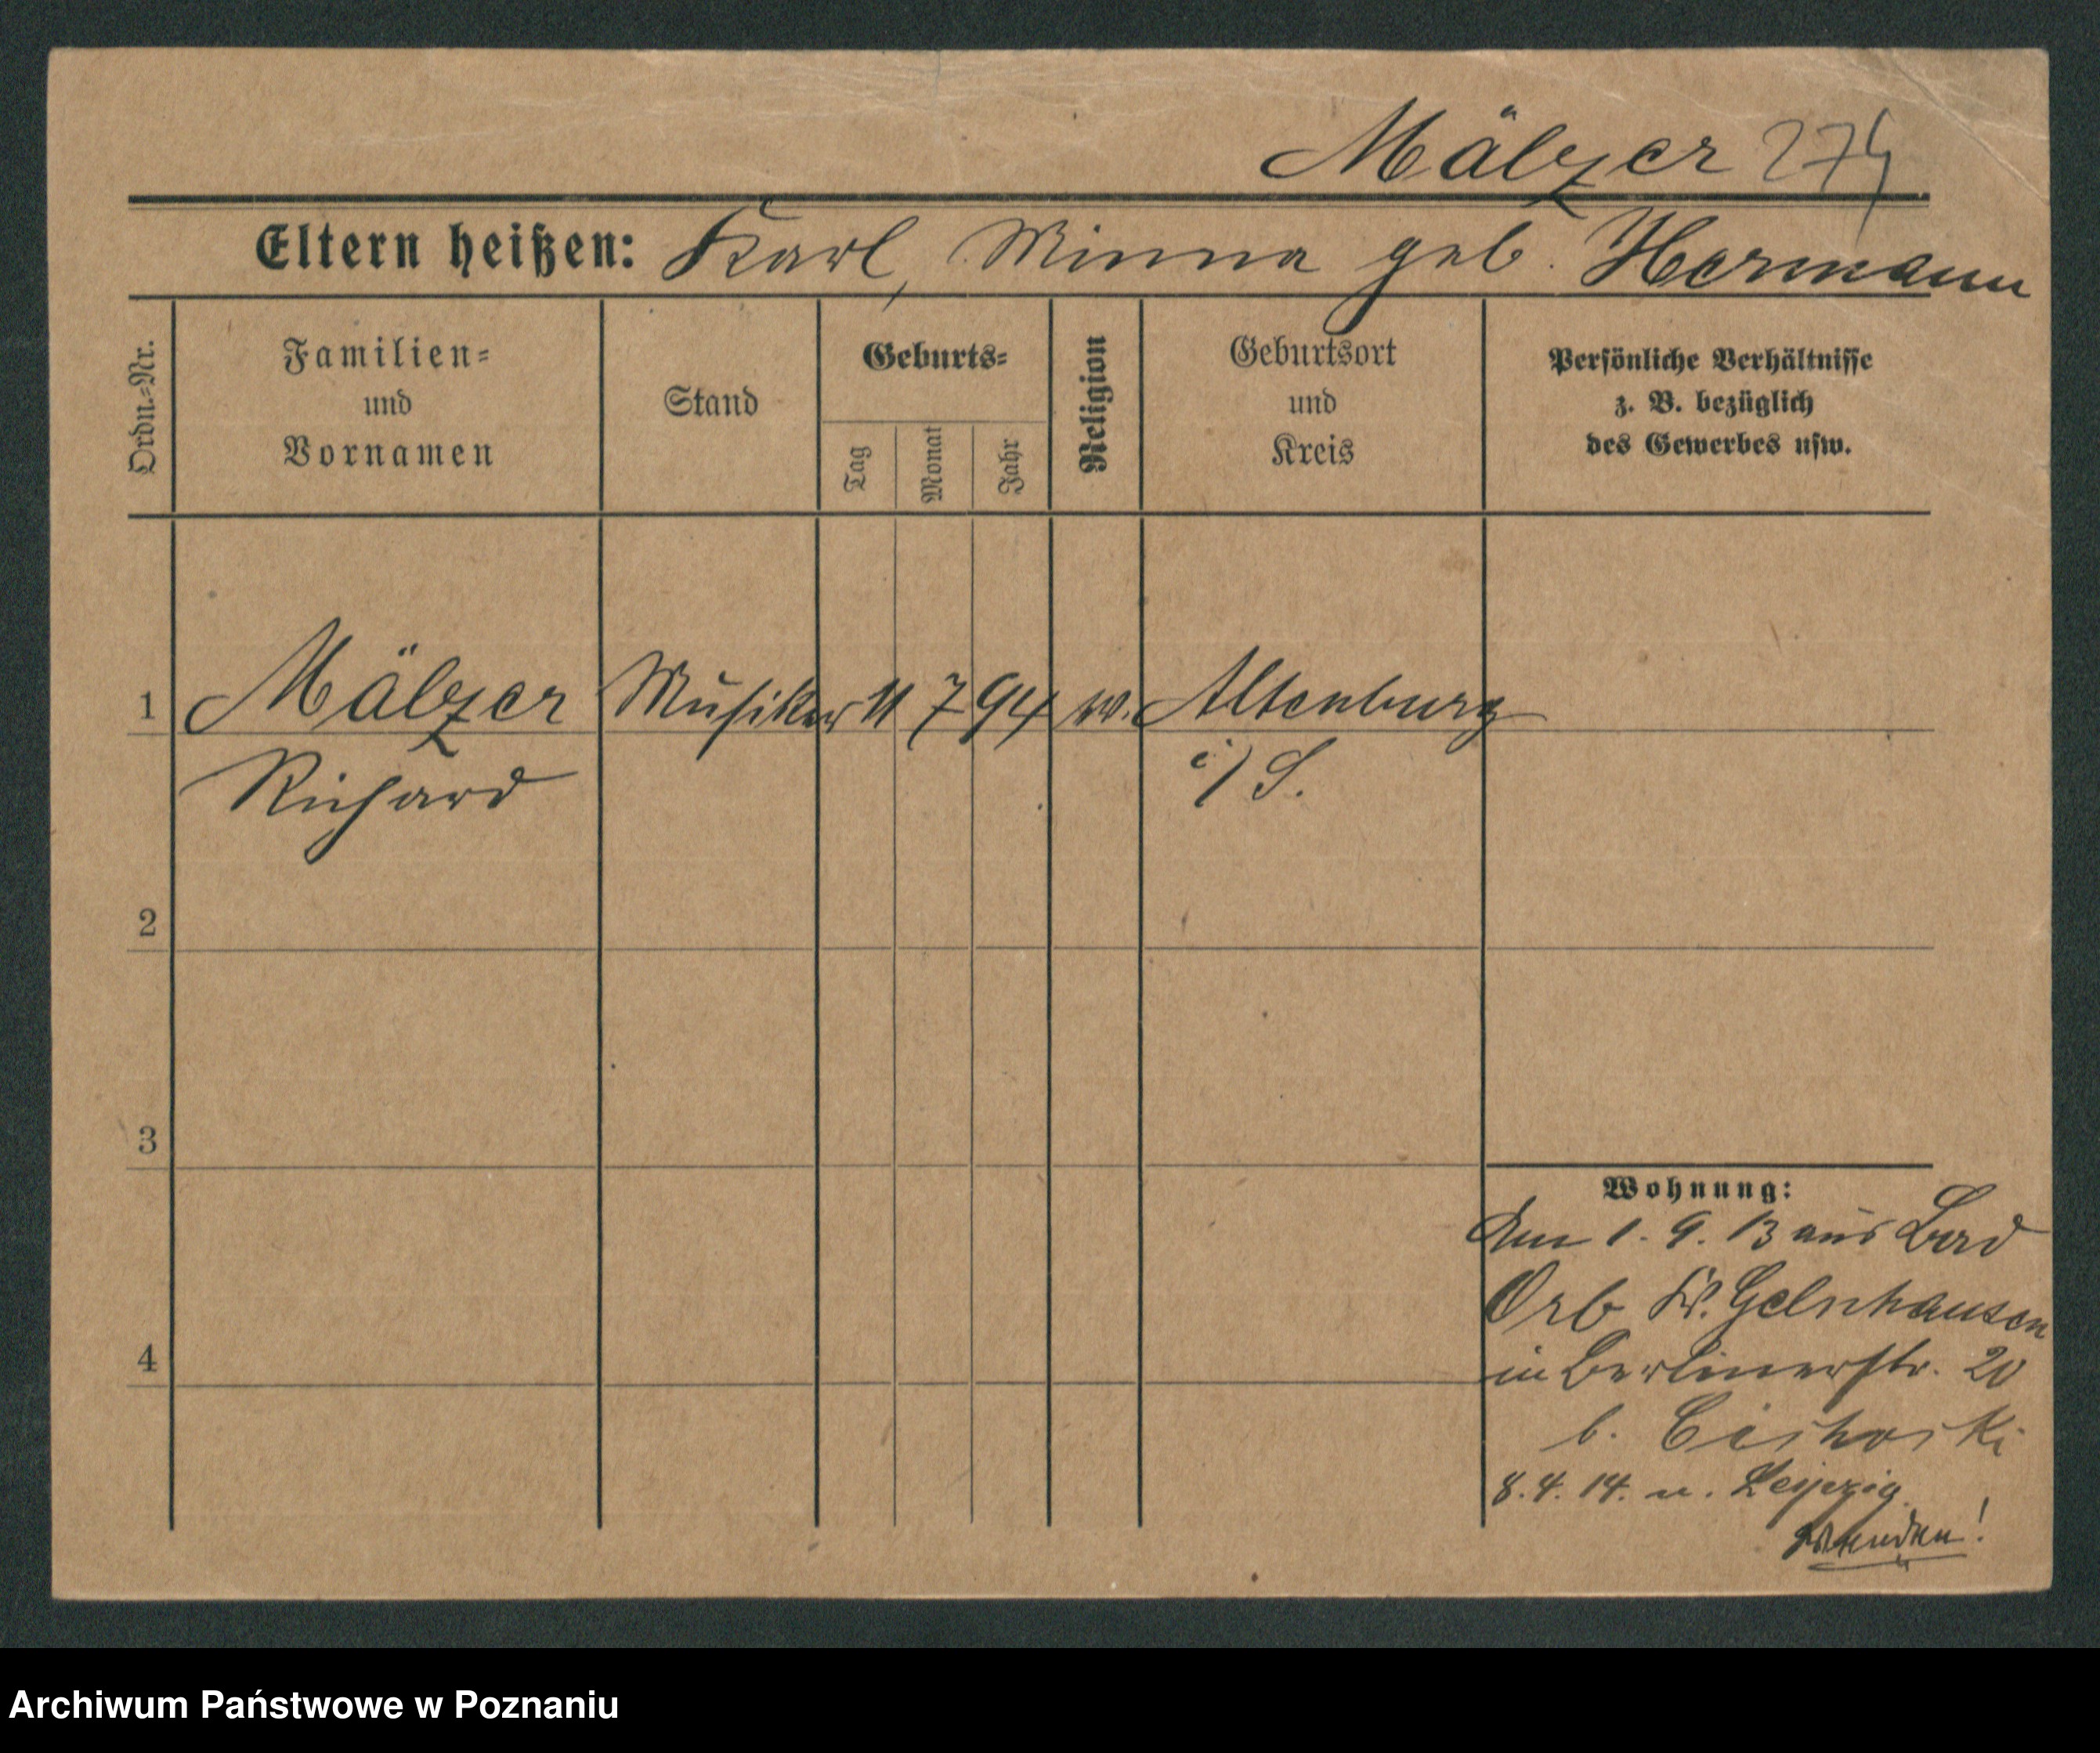 Mälzer 274
Eltern heißen: Karl, Minna geb. Hermann
Ordn.-Nr.
Familien- und Vornamen
Stand
Geburts-
Tag
Monat
Jahr
Religion
Geburtsort und Kreis
Persönliche Verhältnisse
z. B. bezüglich
des Gewerbes usw.
1 Mälzer Musiker 11 7 94 Altenburg
Richard i/S.
2
3
4
Wohnung:
Am 1. 9. 13 aus Bad
Orb Kr. Gelnhausen
in Berlinerstr. 20
b. Cichoski
8.4.14. n. Leipzig
Wenden!
Archiwum Państwowe w Poznaniu